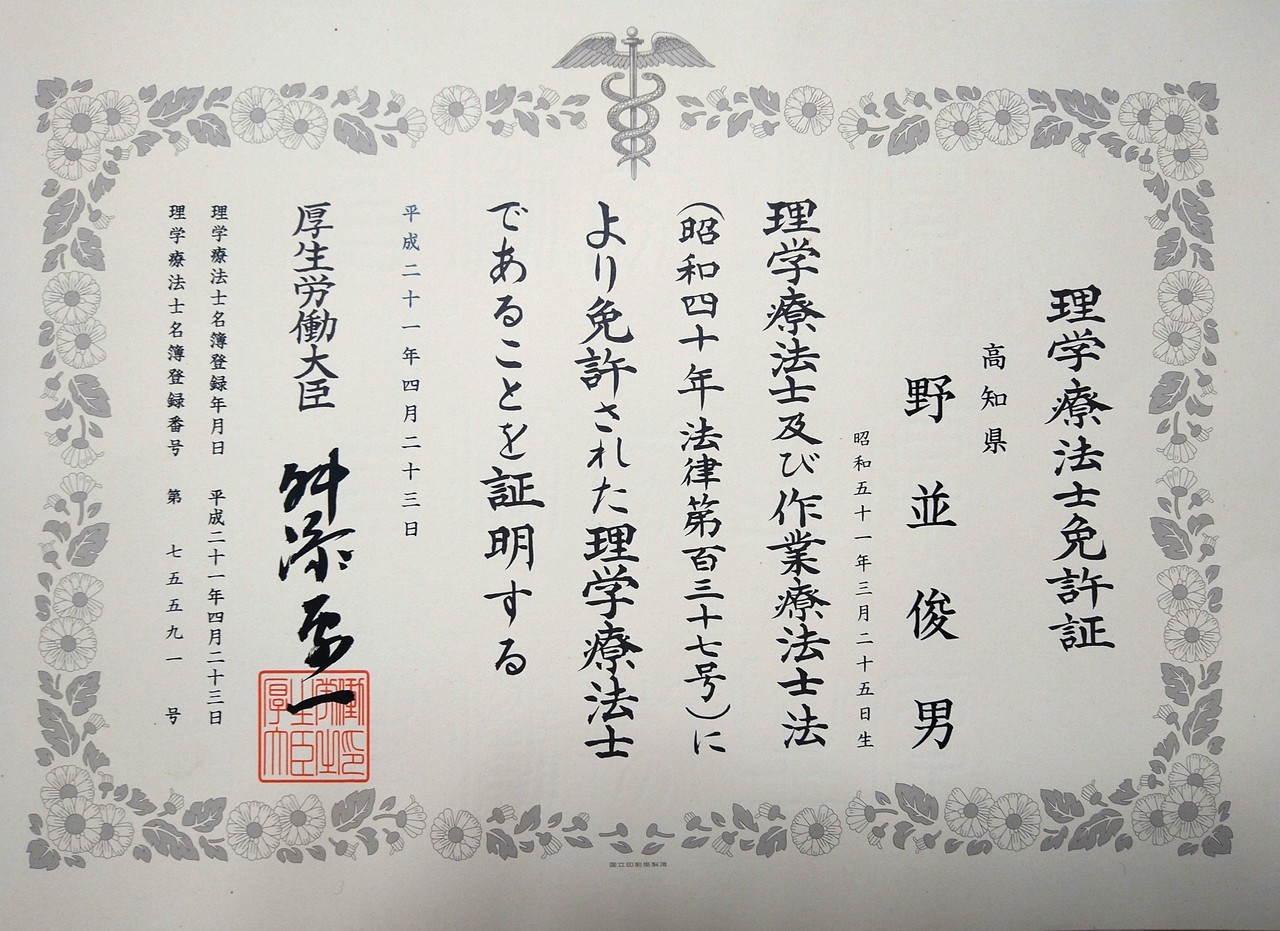 理学療法士免許証
高知県
野並俊男
昭和五十一年三月二十五日生
理学療法士及び作業療法士法
(昭和四十年法律第百三十七号)に
より免許された理学療法士
であることを証明する
平成二十一年四月二十三日
厚生労働大臣 舛添要一
理学療法士名簿登録年月日 平成二十一年四月二十三日
理学療法士名簿登録番号 第 七五五九一 号
国立印刷局製造